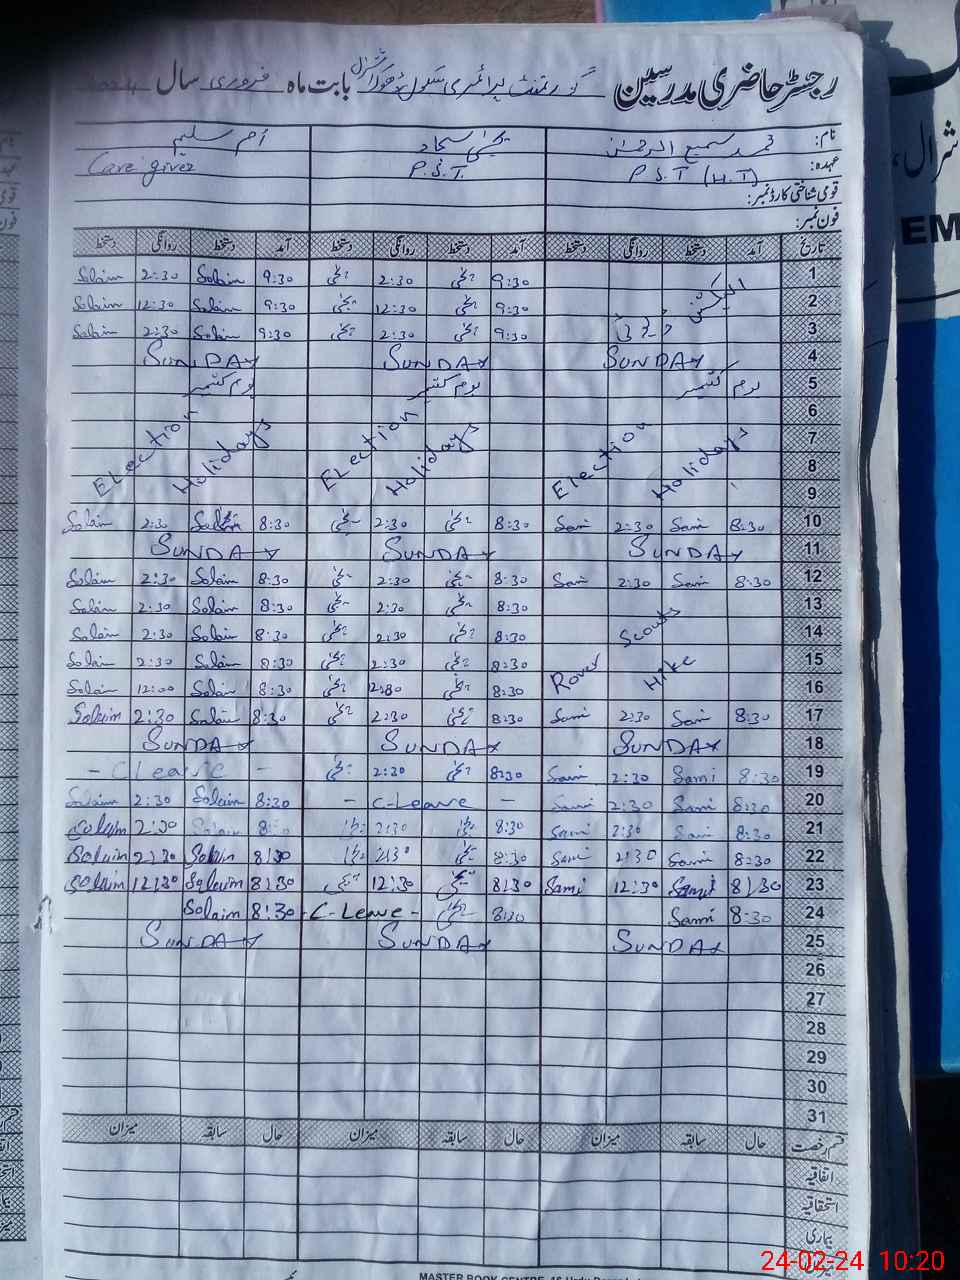 رجسٹر حاضری مدرسین گورنمنٹ پرائمری سکول بابت ماہ فروری سال
نام: محمد سمیع الرحمٰن یحییٰ سجاد احمد سلیم
عہدہ: P.S.T (H.T) P.S.T. Care giver
قومی شناختی کارڈ نمبر:
فون نمبر:
تاریخ آمد دستخط روانگی دستخط آمد دستخط روانگی دستخط آمد دستخط روانگی دستخط
1 9:30 یحییٰ 2:30 یحییٰ 9:30 Solaim 2:30 Solaim
2 الیکشن 9:30 یحییٰ 12:30 یحییٰ 9:30 Solaim 12:30 Solaim
3 ڈیوٹی 9:30 یحییٰ 2:30 یحییٰ 9:30 Solaim 2:30 Solaim
4 SUNDAY SUNDAY SUNDAY
5 یوم کشمیر یوم کشمیر یوم کشمیر
6
7 Election Holidays Election Holidays Election Holidays
8
9
10 8:30 Sami 2:30 Sami 8:30 یحییٰ 2:30 یحییٰ 8:30 Solaim 2:30 Solaim
11 SUNDAY SUNDAY SUNDAY
12 8:30 Sami 2:30 Sami 8:30 یحییٰ 2:30 یحییٰ 8:30 Solaim 2:30 Solaim
13 8:30 یحییٰ 2:30 یحییٰ 8:30 Solaim 2:30 Solaim
14 Scouts 8:30 یحییٰ 2:30 یحییٰ 8:30 Solaim 2:30 Solaim
15 Rover Hike 8:30 یحییٰ 2:30 یحییٰ 8:30 Solaim 2:30 Solaim
16 8:30 یحییٰ یحییٰ 8:30 Solaim 12:00 Solaim
17 8:30 Sami 2:30 Sami 8:30 یحییٰ 2:30 یحییٰ 8:30 Solaim 2:30 Solaim
18 SUNDAY SUNDAY SUNDAY
19 8:30 Sami 2:30 Sami 8:30 یحییٰ 2:30 یحییٰ - C Leave -
20 8:30 Sami 2:30 Sami - C-Leave - 8:30 Solaim 2:30 Solaim
21 8:30 Sami 2:30 Sami 8:30 یحییٰ 2:30 یحییٰ Solaim Solaim
22 8:30 Sami 2:30 Sami 8:30 یحییٰ 2:30 یحییٰ 8:30 Solaim 2:30 Solaim
23 8:30 Sami 12:30 Sami 8:30 یحییٰ 12:30 یحییٰ 8:30 Solaim 12:30 Solaim
24 8:30 Sami 8:30 یحییٰ - C-Leave - 8:30 Solaim
25 SUNDAY SUNDAY SUNDAY
26
27
28
29
30
31
قسم رخصت حال سابقہ میزان حال سابقہ میزان حال سابقہ میزان
اتفاقیہ
استحقاقیہ
بیماری
میزان
MASTER BOOK CENTRE
EM
24-02-24 10:20